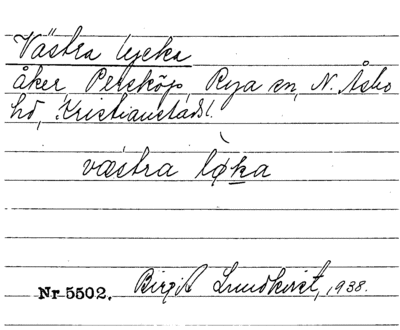 Västra lycka
åker, Persköp, Rya sn, N. Åsbo
hd, Kristianstads l.
væstra lø̀ḵa
Nr 5502. Birgit Lundkvist, 1938.